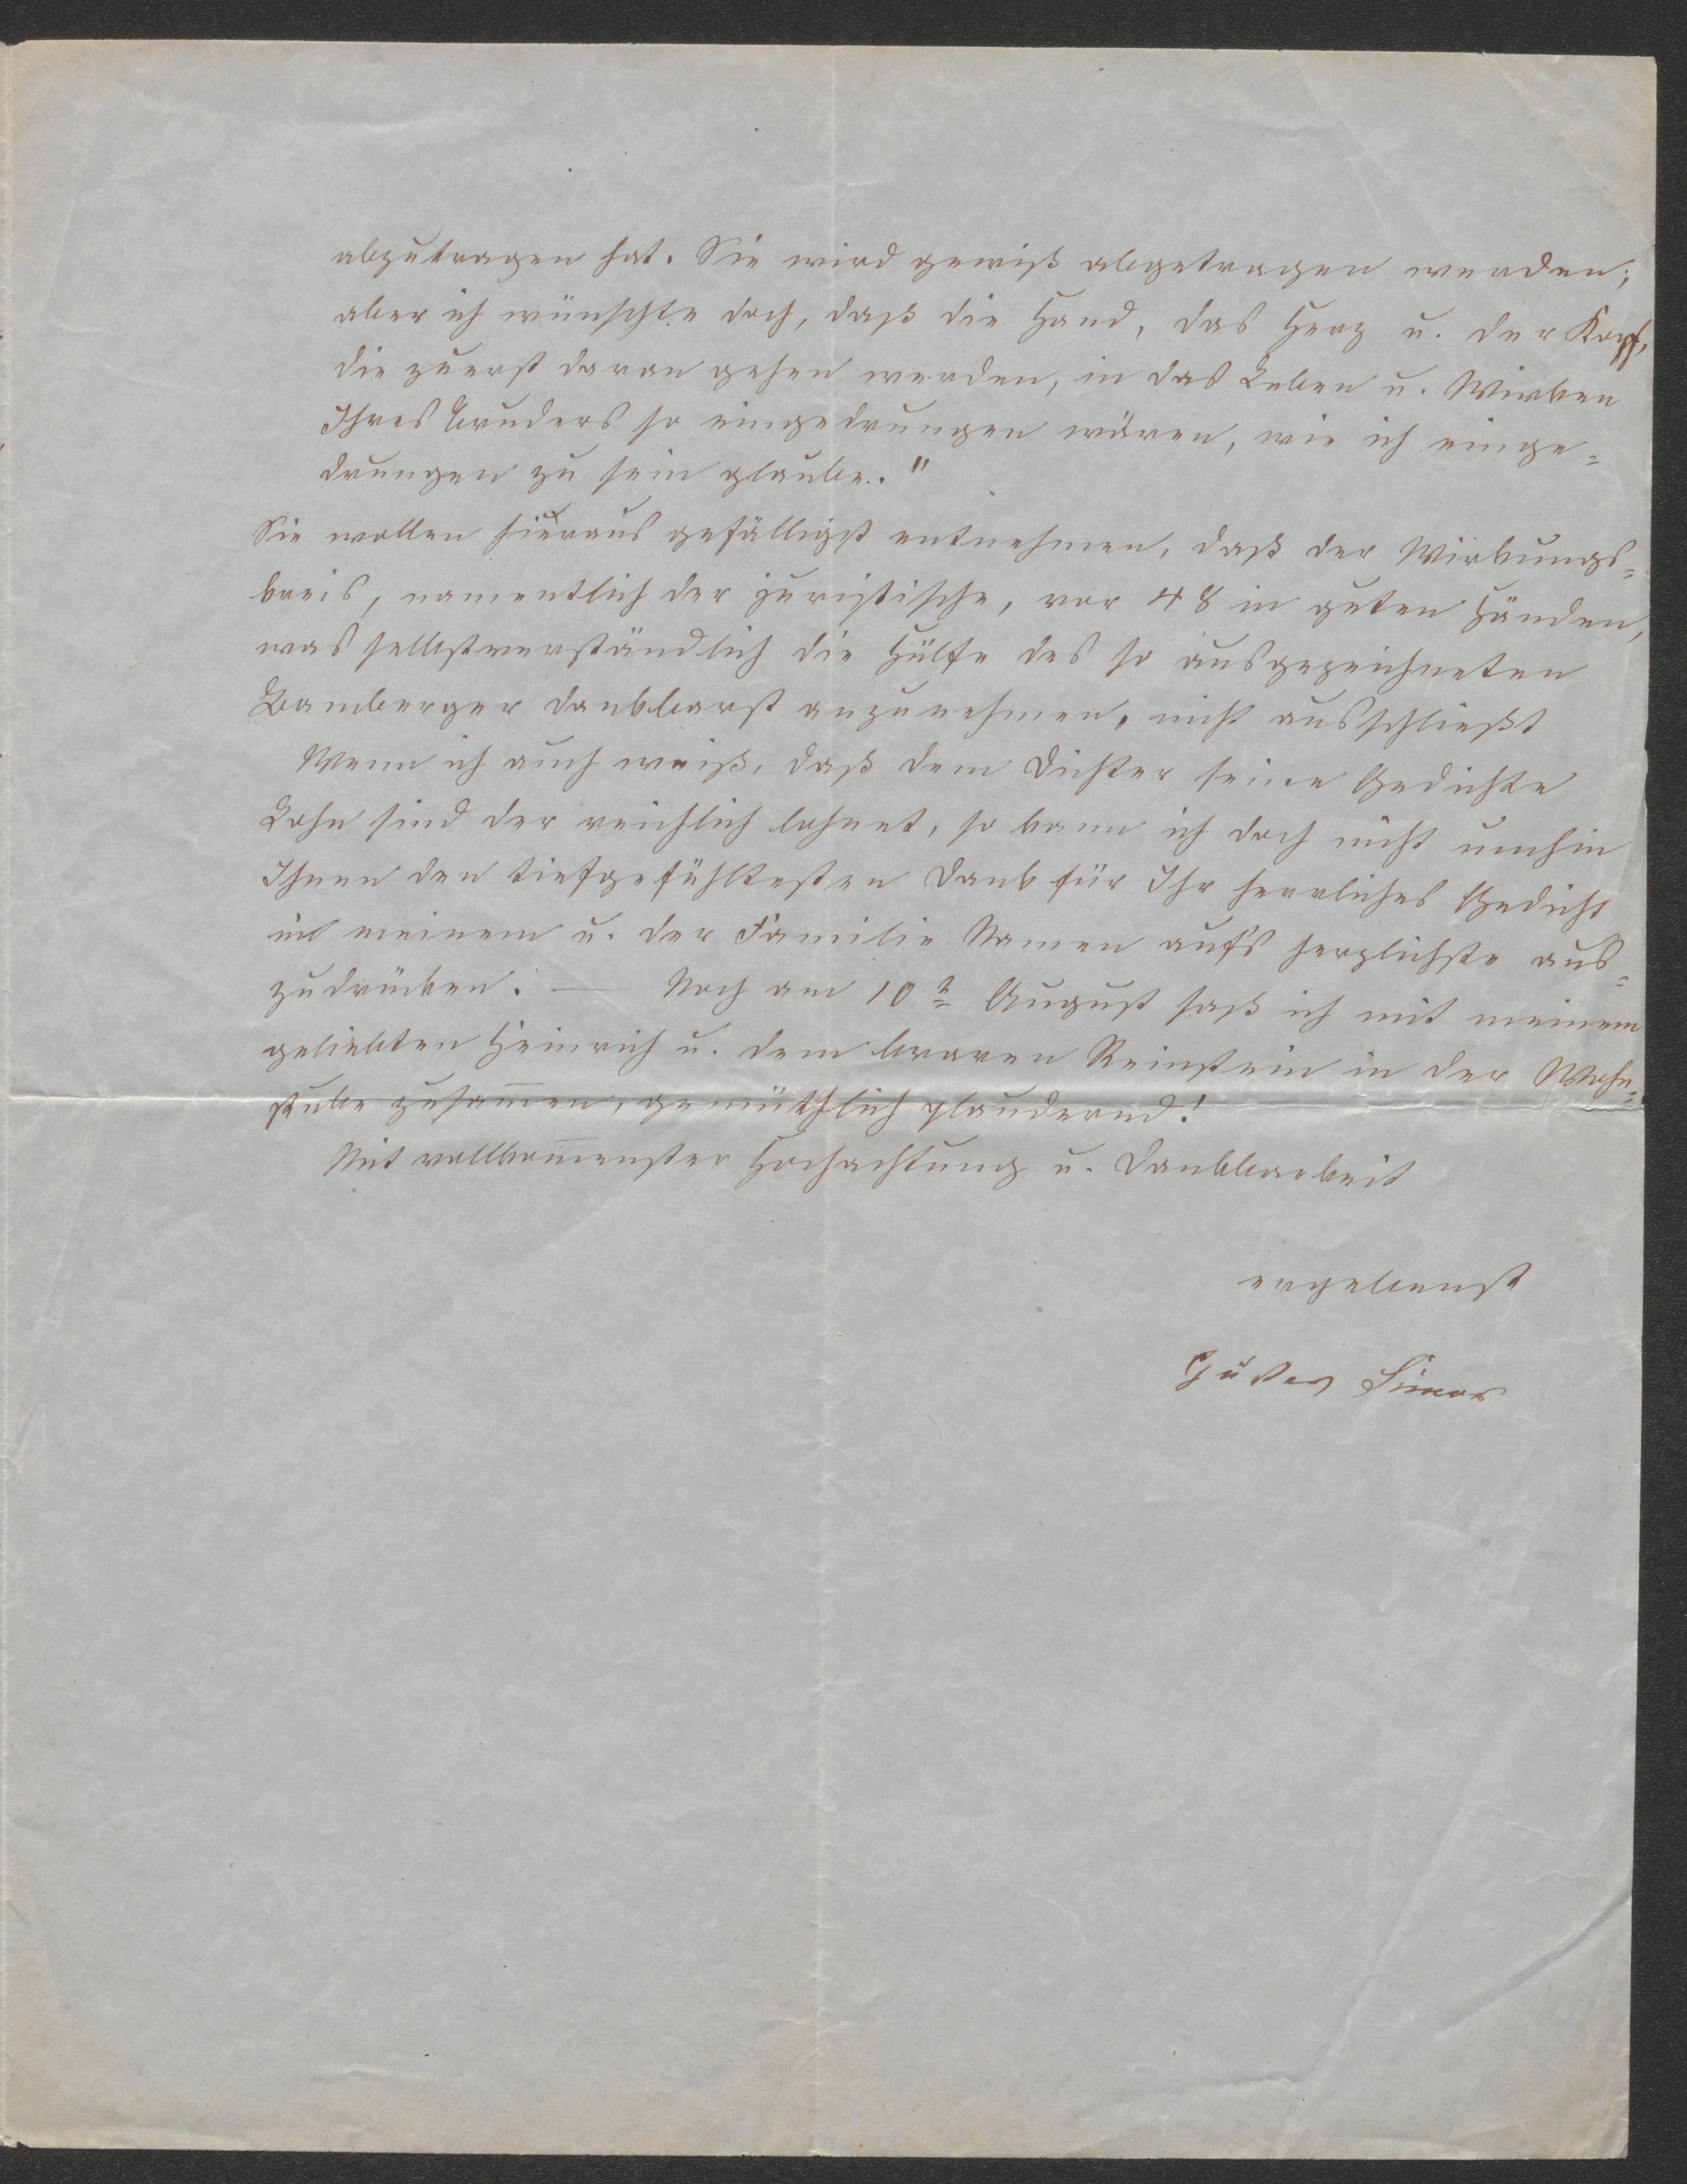 abzutragen hat. Sie wird gewiß abgetragen werden;
aber ich wünschte doch, daß die Hand, das Herz u. der Kopf,
die zuerst daran gehen werden, in das Leben u. Wirken
Ihres Bruders so eingedrungen wären, wie ich einge=
drungen zu sein glaube."
Sie wollen hieraus gefälligst entnehmen, daß der Wirkungs=
kreis, namentlich der juristische, vor 48 in guten Händen,
was selbstverständlich die Hülfe des so ausgezeichneten
Bamberger dankbarst anzunehmen, nicht ausschließt
Wenn ich auch weiß, daß dem Dichter seine Gedichte
Lohn sind der reichlich lohnet, so kann ich doch nicht umhin
Ihnen den tiefgefühltesten Dank für Ihr herrliches Gedicht
in meinem u. der Familie Namen aufs herzlichste aus=
zudrücken. — Noch am 10t August saß ich mit meinem
geliebten Heinrich u. dem braven Reinstein in der Wohn=
stube zusam̅en, gemüthlich plaudernd!
Mit vollkom̅enster Hochachtung u. Dankbarkeit
ergebenst
Gustav Simon